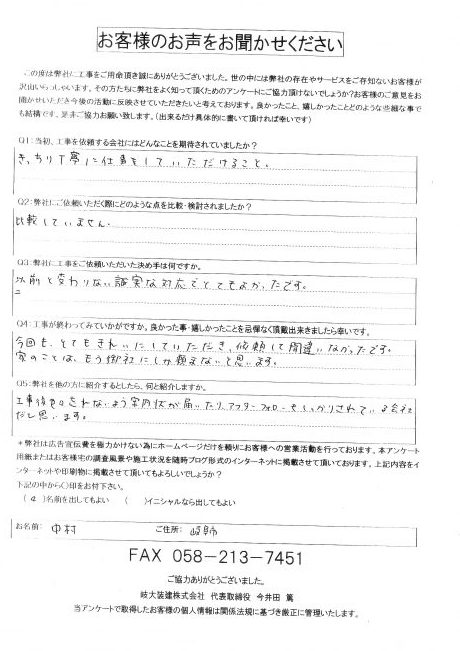 お客様のお声をお聞かせください
この度は弊社に工事をご用命頂き誠にありがとうございました。世の中には弊社の存在やサービスをご存知ないお客様が
沢山いらっしゃいます。その方たちに弊社をよく知って頂くためのアンケートにご協力頂けないでしょうか?お客様のご意見をお
聞かせいただき今後の活動に反映させていただきたいと考えております。良かったこと、嬉しかったことどのような些細な事で
も結構です、是非ご協力お願い致します。(出来るだけ具体的に書いて頂ければ幸いです)
Q1:当初、工事を依頼する会社にはどんなことを期待されていましたか?
きっちり丁寧に仕事をしていただけること。
Q2:弊社にご依頼いただく際にどのような点を比較・検討されましたか?
比較していません。
Q3:弊社に工事をご依頼いただいた決め手は何ですか。
以前と変わりない誠実な対応でとてもよかったです。
Q4:工事が終わってみていかがですか。良かった事・嬉しかったことを忌憚なく頂戴出来ましたら幸いです。
今回も、とてもきれいにしていただき、依頼して間違いなかったです。
家のことは、もう御社にしか頼まないと思います。
Q5:弊社を他の方に紹介するとしたら、何と紹介しますか。
工事後も忘れないよう案内状が届いたり、アフターフォローもしっかりされている会社
だと思います。
*弊社は広告宣伝費を極力かけない為にホームページだけを頼りにお客様への営業活動を行っております。本アンケート
用紙またはお客様宅の調査風景や施工状況を随時ブログ形式のインターネットに掲載させて頂いております。上記内容をイ
ンターネットや印刷物に掲載させて頂いてもよろしいでしょうか?
下記の中から〇印をお付下さい。
( )名前を出してもよい ( )イニシャルなら出してもよい
お名前: 中村 ご住所: 岐阜市
FAX 058-213-7451
ご協力ありがとうございました。
岐大装建株式会社 代表取締役 今井田 篤
当アンケートで取得したお客様の個人情報は関係法規に基づき厳正に管理いたします。